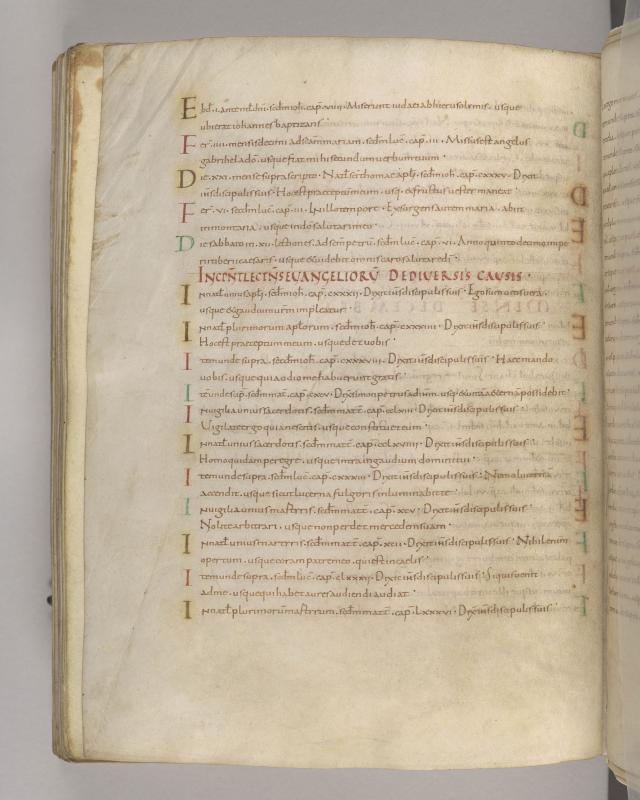 Ebd. i. ante nat dni. scdm ioh. cap. viiii. Miserunt iudaei ab hierusolimis. usque
ubi erat iohannes baptizans.
Fer. iiii. mensis decimi ad scam mariam. scdm luc. cap. iii. Missus est angelus
gabrihel a do. usque fiat mihi secundum uerbum tuum.
Die. xxi. mense suprascripto. Natl sci thomae apli. scdm ioh. cap. cxxxv. Dixit
ihs discipulis suis. Hoc est praeceptum meum. usq. et fructus uester maneat.
Fer. vi. scdm luc. cap. iiii. In illo tempore. Exsurgens autem maria. abiit
in montana. usque in do salutari meo.
Die sabbato in. xii. lectiones. ad scm petru. scdm luc. cap. vi. Anno quinto decimo impe
rii tiberii caesaris. usque et uidebit omnis caro salutare di.
INCPNT LECTNS EVANGELIORU DE DIVERSIS CAUSIS.
In natl unius apli. scdm ioh. cap. cxxxii. Dixit ihs discipulis suis. Ego sum uitis uera.
usque et gaudium urm impleatur.
In natl plurimorum aplorum. scdm ioh. cap. cxxxiiii. Dixit ihs discipulis suis.
Hoc est praeceptum meum. usque det uobis.
Item unde supra. secdm ioh. cap. cxxxviii. Dixit ihs discipulis suis. Haec mando
uobis. usque quia odio me habuerunt gratis.
Item unde sup. scdm mat. cap. cxcv. Dixit simon petrus ad ihm. usq. et uitam aeternam possidebit.
In uigilia unius sacerdotis. scdm matt. cap. cclxiii. Dixit ihs discipulis suis.
Vigilate ergo quia nescitis. usque constituet eum.
In natl unius sacerdotis. scdm matt. cap. cclxviiii. Dixit ihs discipulis suis.
Homo quidam peregre. usque intra in gaudium domini tui.
Item unde supra. scdm luc. cap. cxxxiii. Dixit ihs discipulis suis. Nemo lucernam
accendit. usque sicut lucerna fulgoris inluminabit te.
In uigilia unius martiris. scdm matt. cap. xcv. Dixit ihs discipulis suis.
Nolite arbitrari. usque non perdet mercedem suam.
In natl unius martiris. scdm matt. cap. xcii. Dixit ihs discipulis suis. Nihil enim
opertum. usque coram patre meo. qui est in caelis.
Item unde supra. scdm luc. cap. clxxxii. Dixit ihs discipulis suis. Si quis uenit
ad me. usque qui habet aures audiendi audiat.
In natl plurimorum martirum. scdm matt. cap. lxxxvi. Dixit ihs discipulis suis.